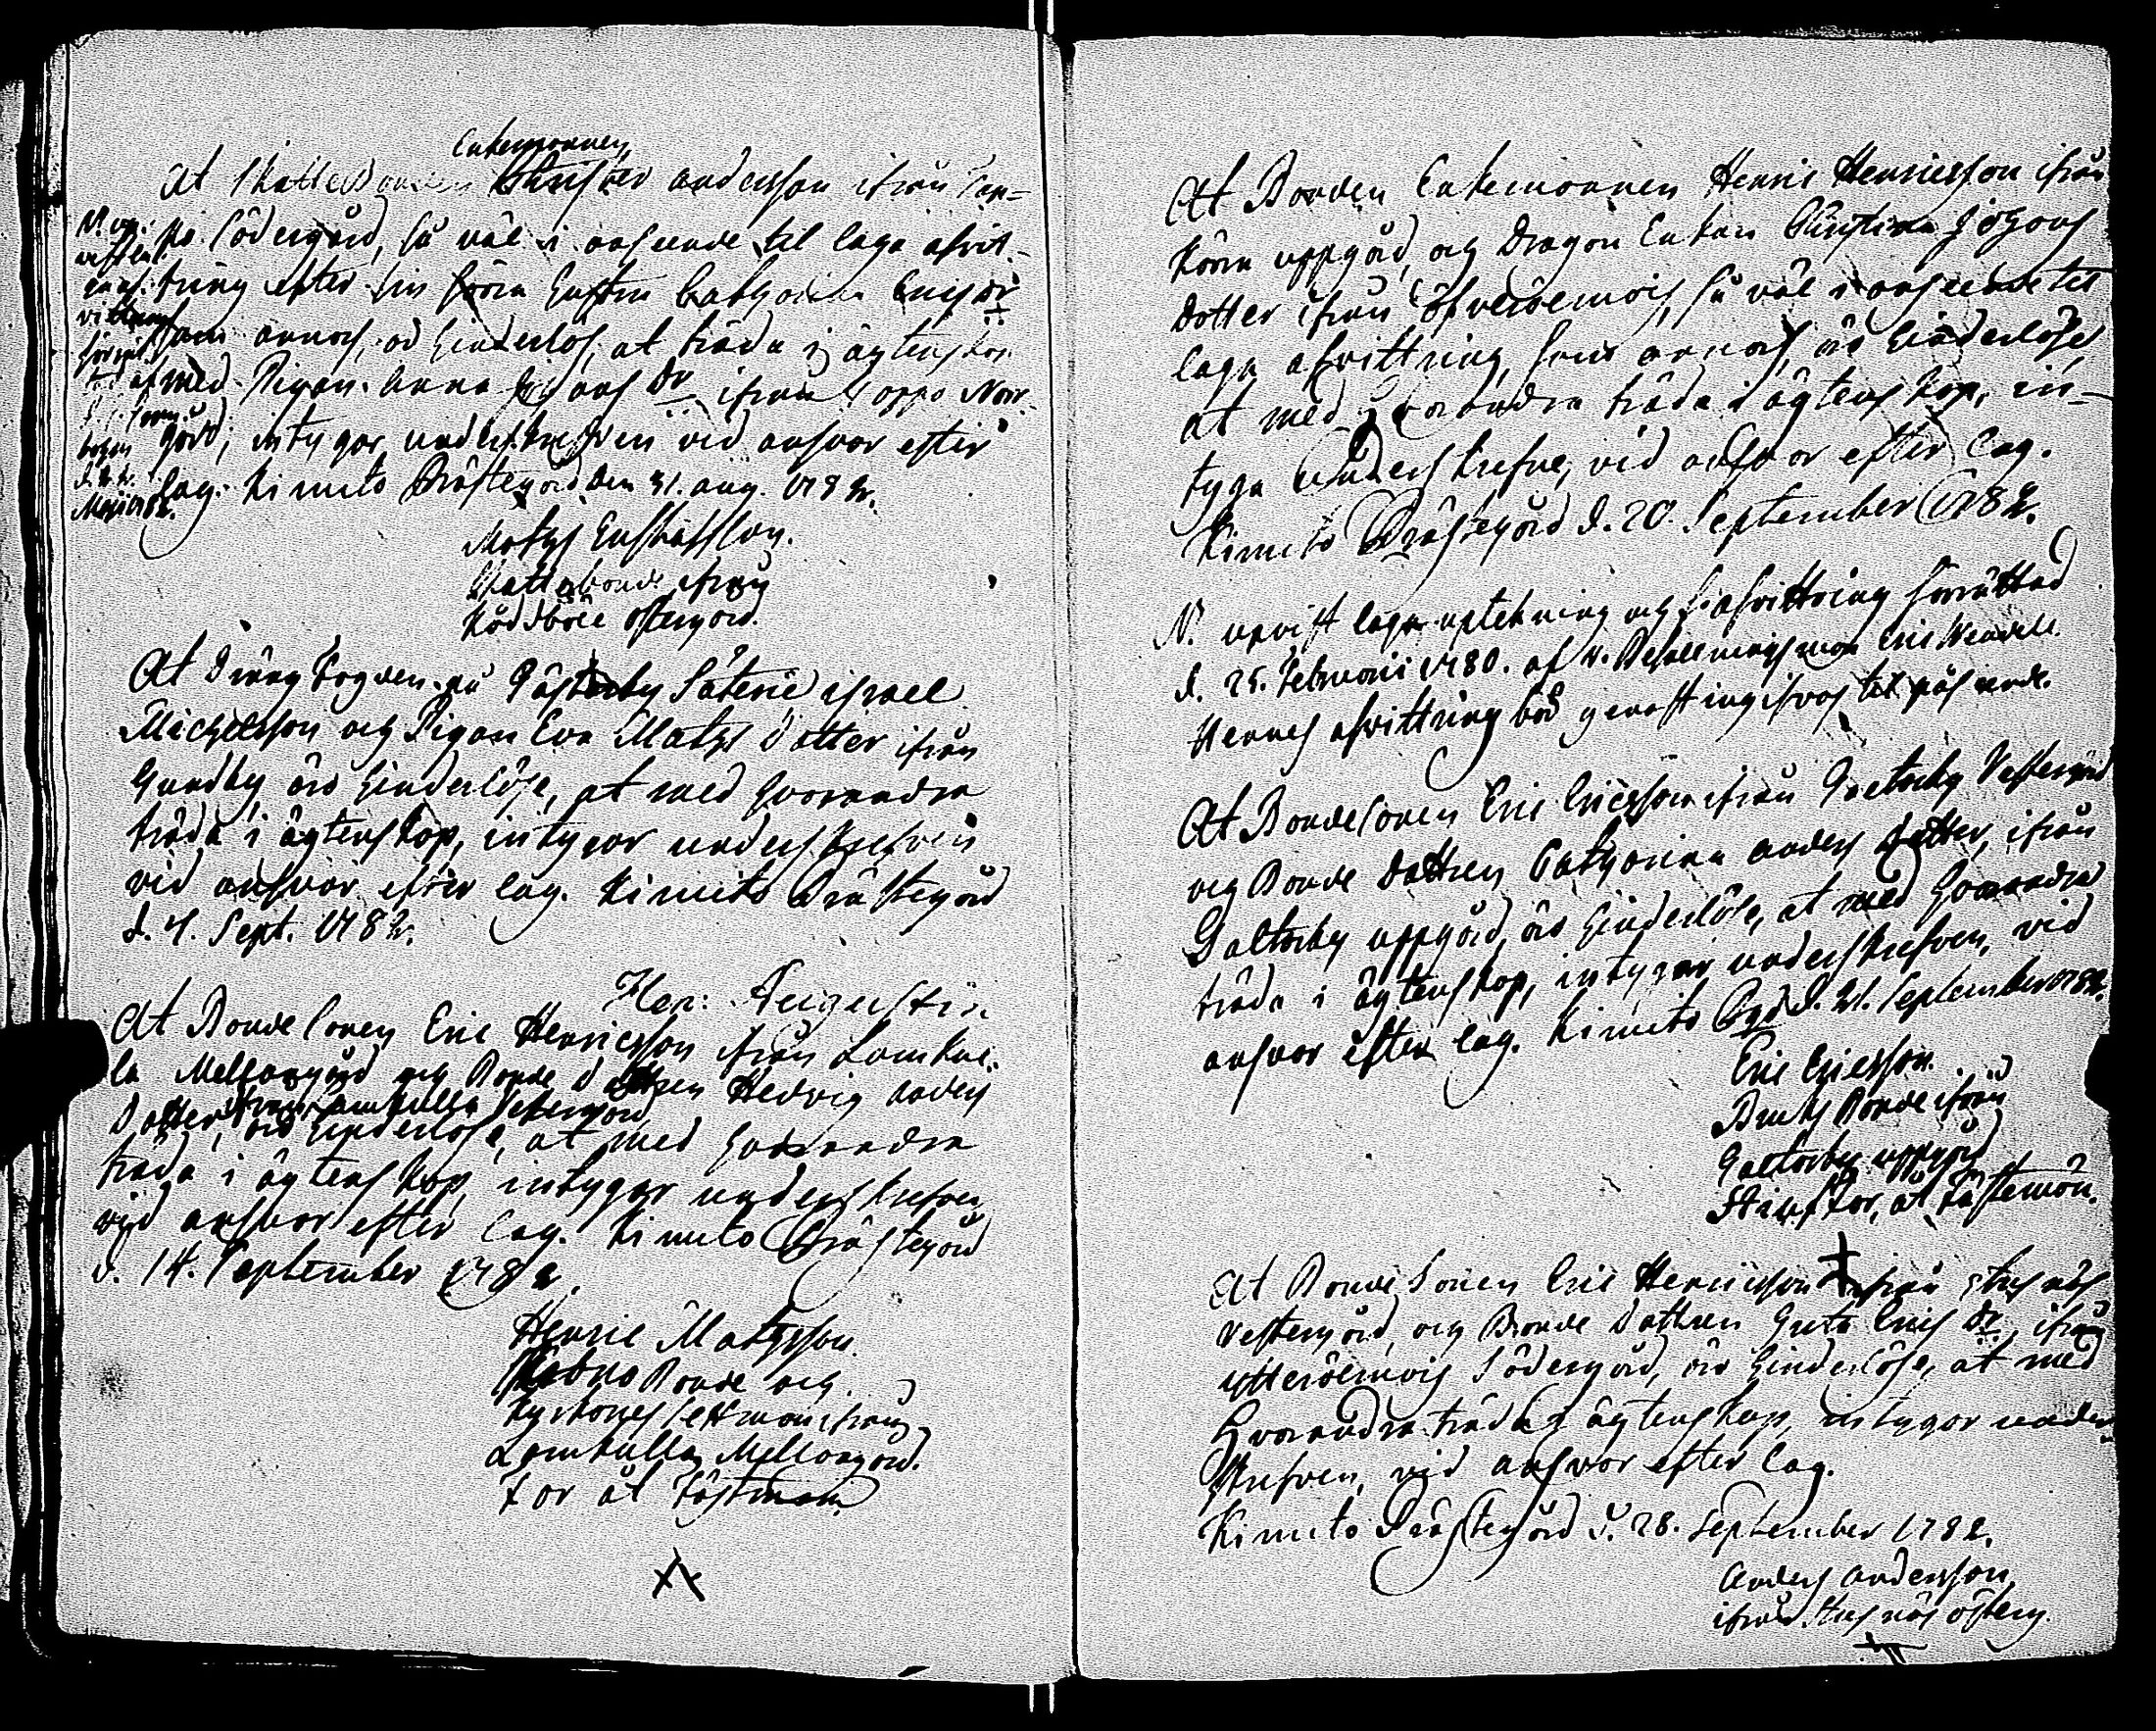 Enkemannen
At Skattebonden Christer Andersson ifrån Tap-
po Södergård, så väl i anseende til laga afvit-
tring efter sin förra hustru Catharina Erics dr
som annars, är hinderlös, at träda i ägtenskap
med Pigan Anna dr ifrån Tappo Norr-
gård; intygar underskrefven vid answar efter
lag. Kimito Prästegård den 31. Aug. 1782.
Maths Gustafsson.
Skattebonde ifrån
Östergård.
At Dräng Fogden på Säterie Israel
Michelsson och Pigan Eva Maths dotter ifrån
Gundby äro hinderlöse, at med hvarandra
träda i ägtenskap, intygar underskrefven
vid answar efter lag. Kimito Prästegård
d. 4. Sept. 1782.
Hen: Augustin
At Bonde Sonen Eric Henricsson ifrån Lamkul-
la Mellangård och Bonde Dottren Hedvig Anders
Dotter ifrån Lamkulla Vestergård
äro hinderlöse, at med hvarandra
träda i ägtenskap, intygar underskrefven
vid answar efter lag. Kimito Prästegård
d. 14. September 1782.
Henric Mathsson.
Bonde och
Kyrkones Sexman ifrån
Lamkulla Mellangård.
Far åt Fästman
At Bonden Enkemannen Henric Henricsson ifrån
uppgård, och Dragon Enkan Christina Johans
dotter ifrån Öfverölmois, så väl i anseende til
laga afvittring, som annars, äro hinderlöse,
at med hvarandra träda i ägtenskap, in-
tyga underskrefne, vid answar efter lag.
Kimito Prästegård d. 20. September 1782.
N. upvist laga uptekning och afvittring förrättad
d. 25. Februarii 1780. af Befallningsman Eric
Hennes afvittring bör genast ingifvas til påseende.
At Bonde Sonen Eric Ericsson ifrån Galtarby Vestergård
och Bonde Dottren Catharina Anders dotter, ifrån
Galtarby uppgård, äro hinderlöse, at med hvarandra
träda i ägtenskap, intygar underskrefven, vid
answar efter lag. Kimito Pgd d. 21. September 1782.
Eric Ericsson.
Bruks Bonde ifrån
Galtarby uppgård
Stiuffar, åt Fästemön.
At Bonde Sonen Eric Henricsson ifrån
Vestergård, och Bonde Dottren Greta Erics dr, ifrån
Ytterölmois Södergård, äro hinderlöse, at med
hvarandra träda i ägtenskap, intygar under-
skrefven, vid answar efter lag.
Kimito Prästegård d. 28. September 1782.
Anders Andersson
ifrån Österg.